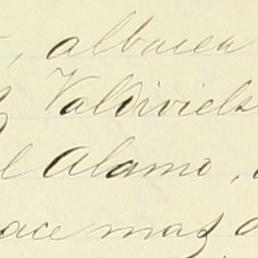 , albacea
Valdiviels
el Alamo,
ace mas d